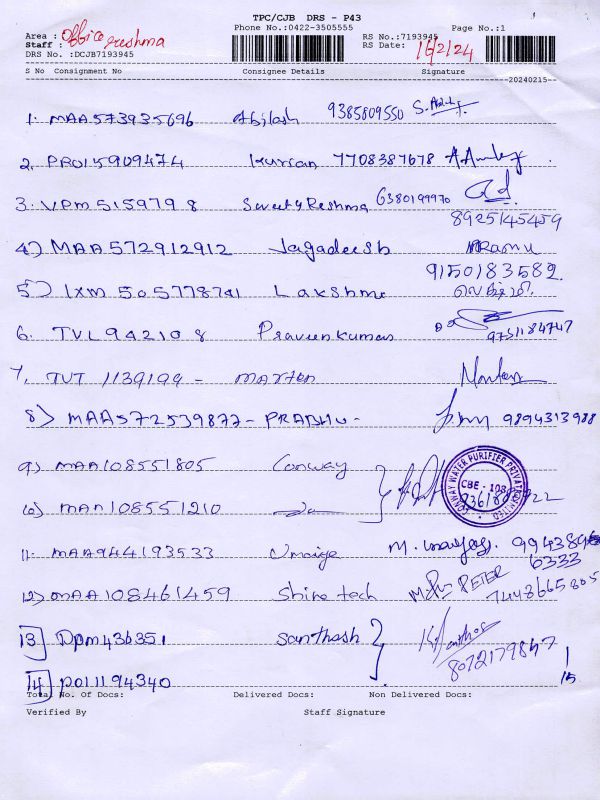 TPC/CJB DRS - P43
Phone No.:0422-3505555
Page No.:1
Area : Office
Staff : Reshma
RS No.:7193945
RS Date: 16/2/24
DRS No. :DCJB7193945
S No Consignment No Consignee Details Signature
20240215
1. MAA573935696 Abilash 9385809550
2. PRO15909474 Kurian 7708387678
3. VPM5159798 Sweety Reshma 6380199970
8925145459
4) MAA572912912 Jagadeesh Ramu
9150183582
5) IXM 505778741 Lakshmi லெக்ஷ்மி
6. TVL942108 Praveenkumar 9751184747
7. TUT 1139199 - marten
8) MAA572539877 - PRABHU - 9894313988
9) MAA108551805 Conway
CONWAY WATER PURIFIER PRIVATE LIMITED
CBE - 108
10) MAA108551210
11. MAA944193533 Umaiya
6333
12) MAA108461459 Shine tech PETER 7448665805
13 DPM436351 Santhosh
8072179847
14 PO11194340
1
15
Total No. Of Docs: Delivered Docs: Non Delivered Docs:
Verified By Staff Signature